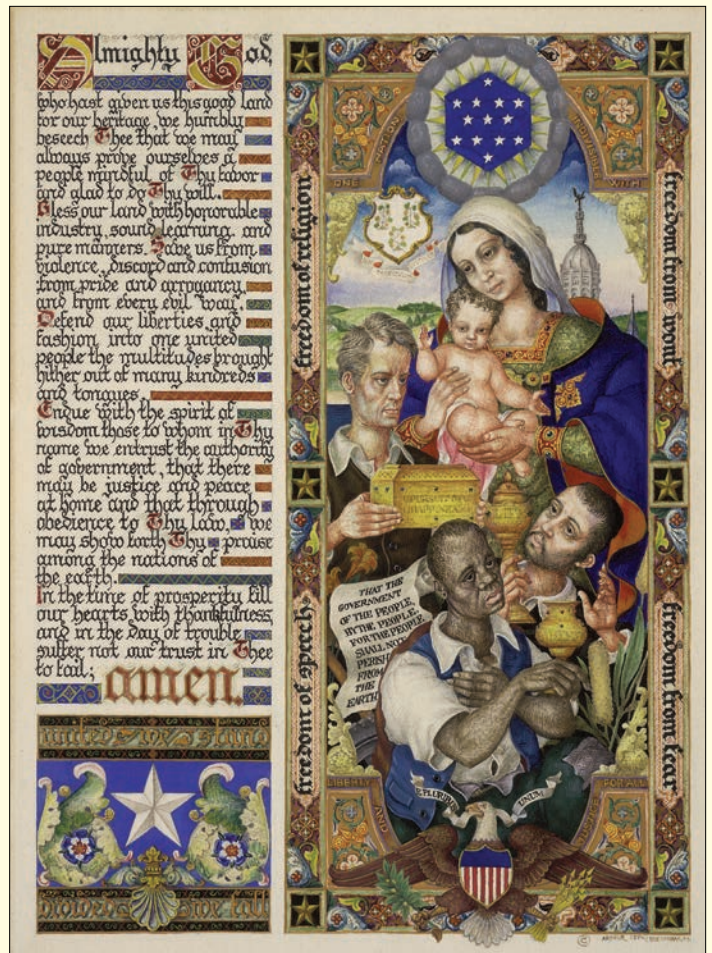 Almighty God,
who hast given us this good land
for our heritage, we humbly
beseech Thee that we may
always prove ourselves a
people mindful of Thy favor
and glad to do Thy will.
Bless our land with honorable
industry, sound learning, and
pure manners. Save us from
violence, discord and confusion
from pride and arrogancy,
and from every evil way.
Defend our liberties and
fashion into one united
people the multitudes brought
hither out of many kindreds
and tongues.
Endue with the spirit of
wisdom those to whom in Thy
name we entrust the authority
of government, that there
may be justice and peace
at home and that through
obedience to Thy law, we
may show forth Thy praise
among the nations of
the earth.
In the time of prosperity fill
our hearts with thankfulness
and in the day of trouble,
suffer not our trust in Thee
to fail;
amen.
united we stand
divided we fall
ONE NATION INDIVISIBLE WITH
freedom of religion
freedom from want
PURSUIT OF
HAPPINESS
THAT THE
GOVERNMENT
OF THE PEOPLE,
BY THE PEOPLE,
FOR THE PEOPLE
SHALL NOT
PERISH
FROM
THE
EARTH
freedom of speech
freedom from fear
LIBERTY AND JUSTICE FOR ALL
E PLURIBUS UNUM
© ARTHUR SZYK